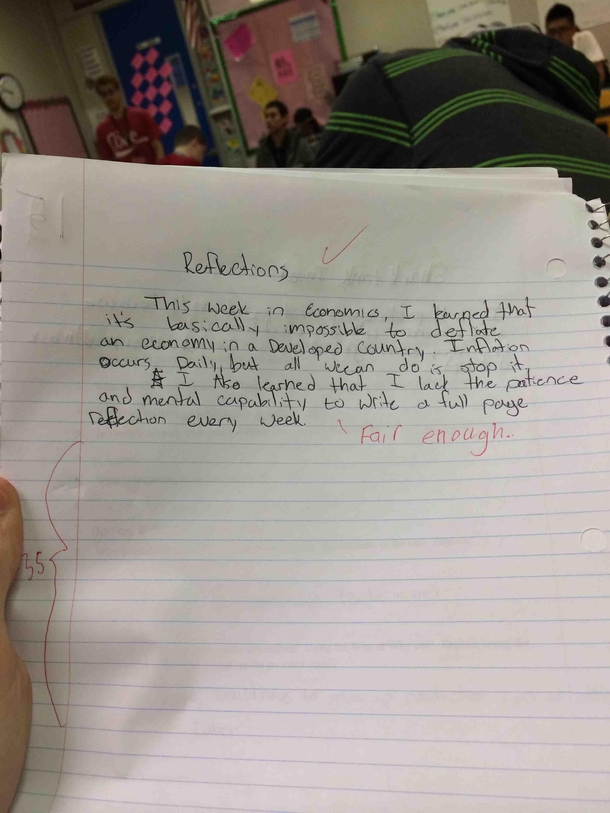 Reflections
This week in Economics, I learned that
it's basically impossible to deflate
an economy in a Developed Country. Inflation
occurs Daily, but all we can do is stop it.
I Also learned that I lack the patience
and mental capability to write a full page
reflection every week
Fair enough..
35